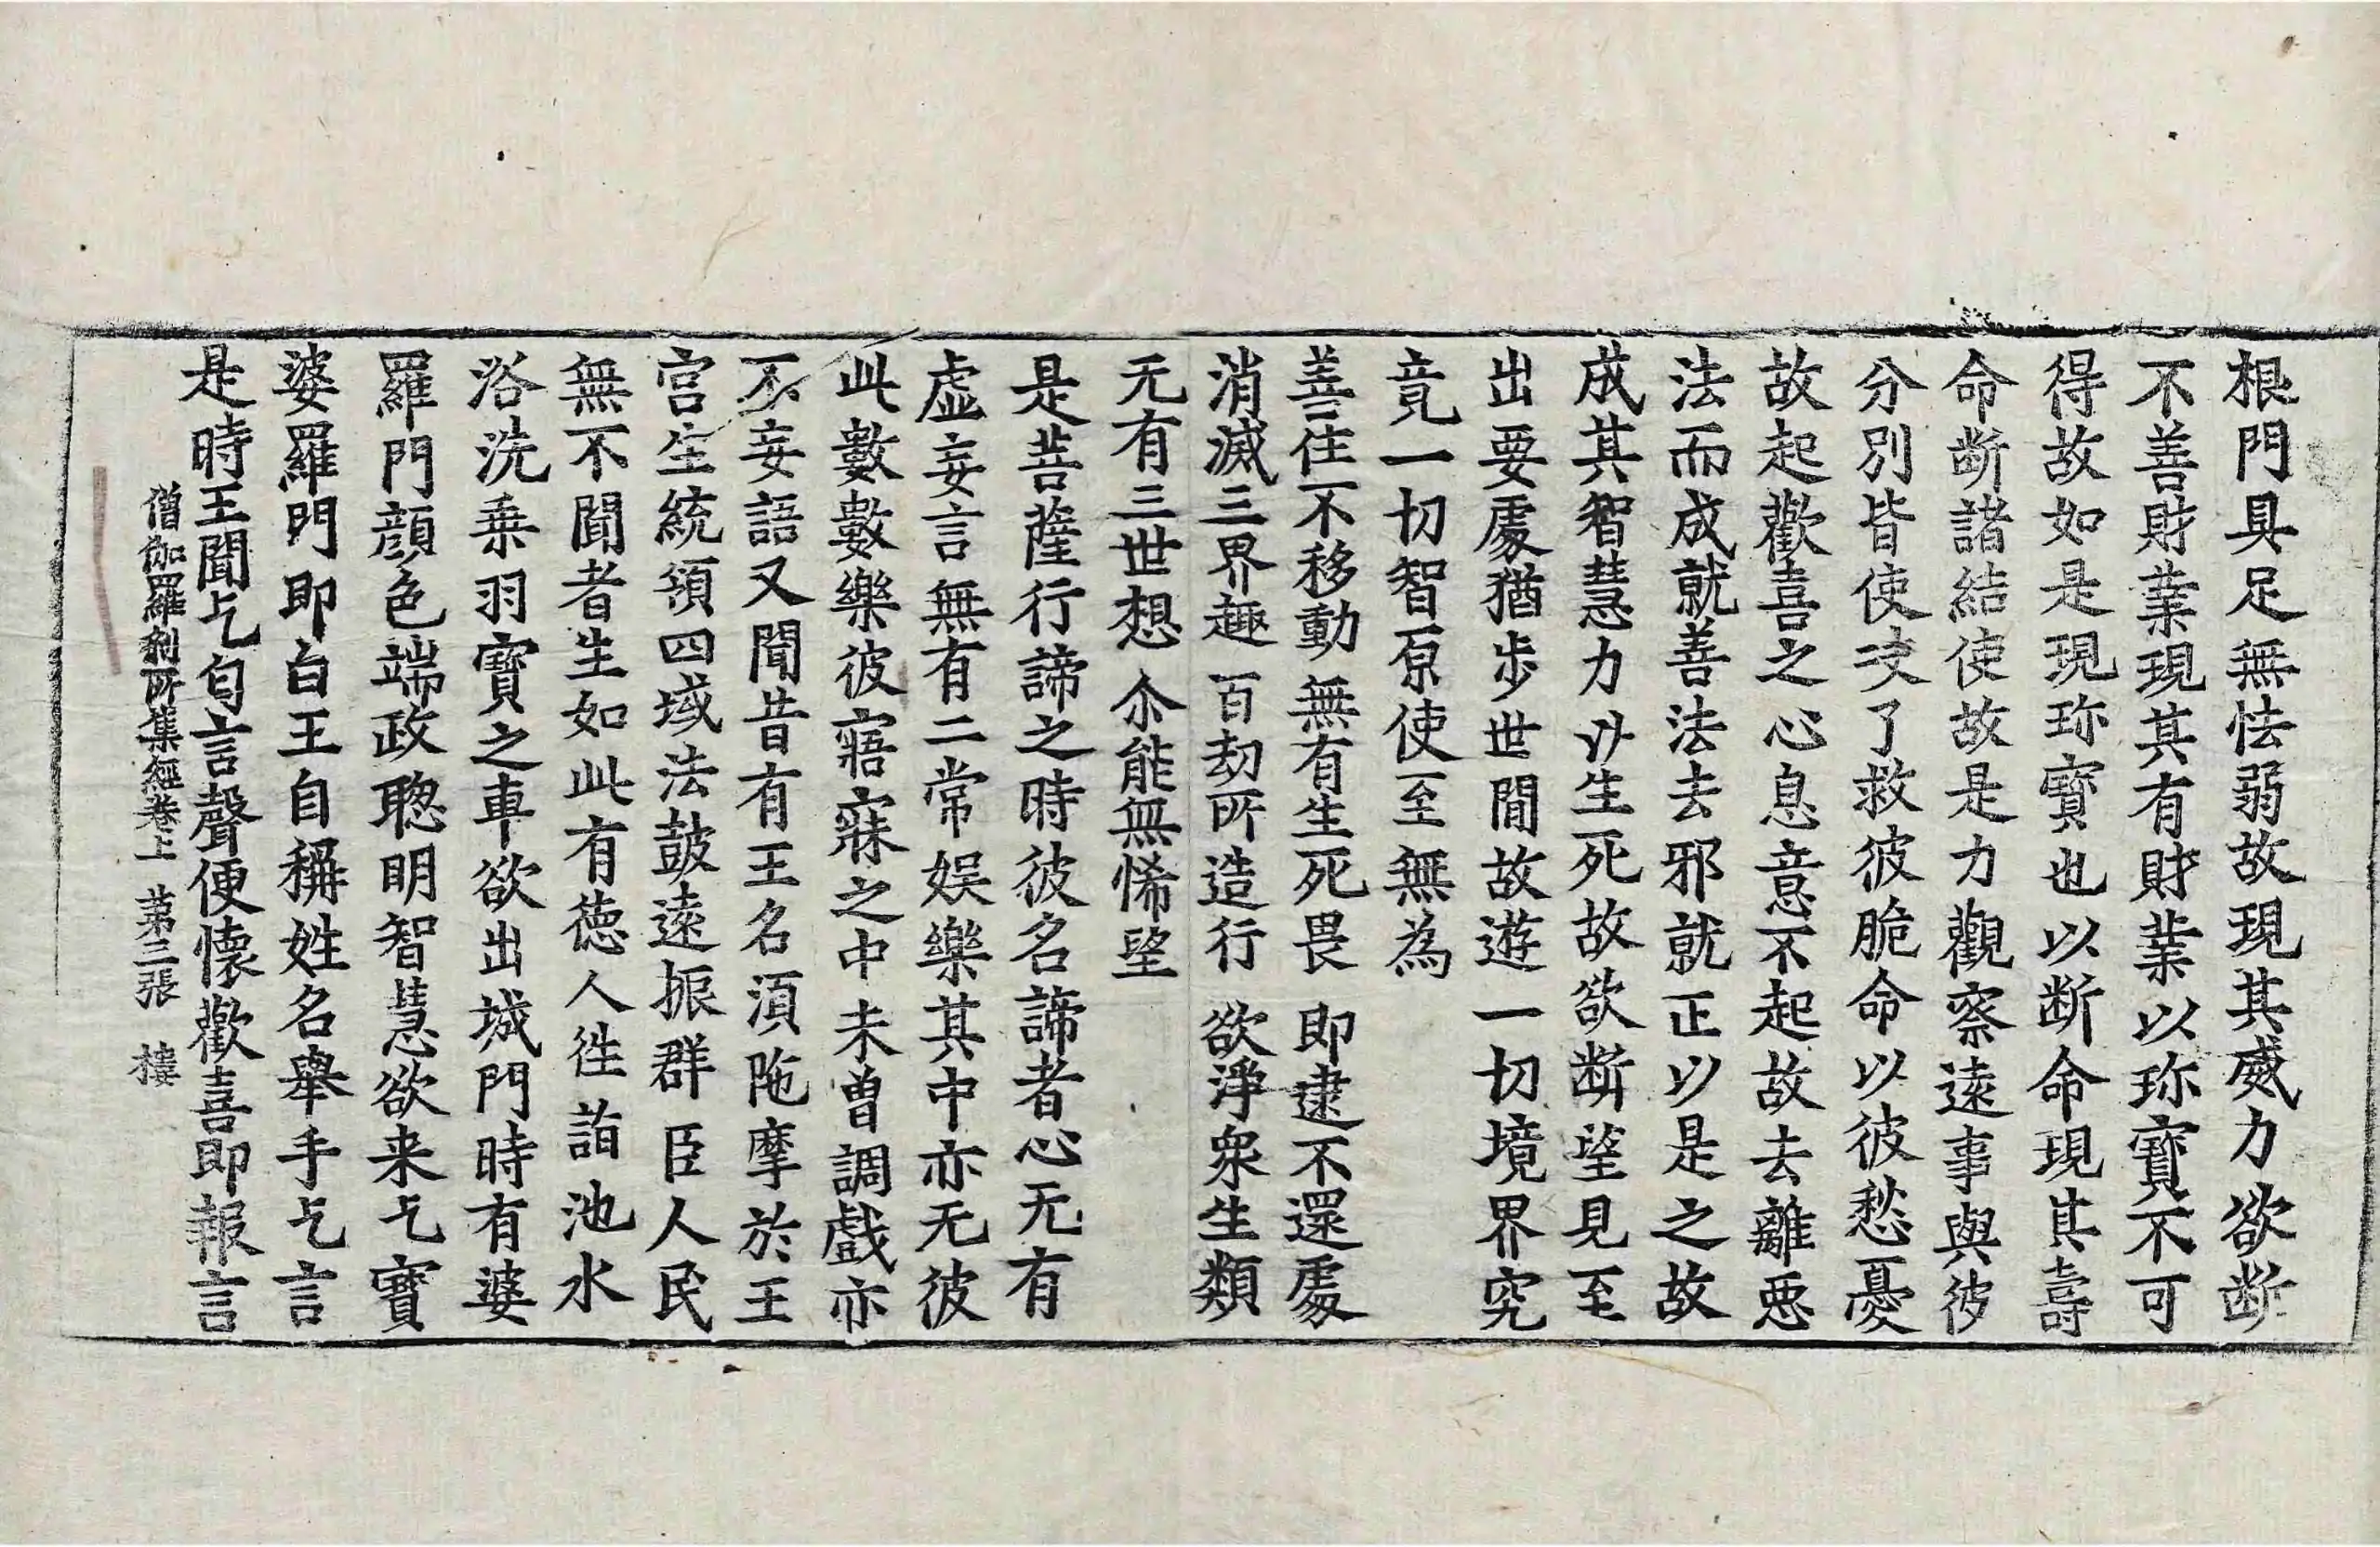 根門具足無怯弱故現其威力欲断
不善財業現其有財業以珎寳不可
得故如是現珎寳也以断命現其壽
命断諸結使故是力觀察遠事與彼
分別皆使决了救彼脆命以彼愁憂
故起歡喜之心息意不起故去離惡
法而成就善法去邪就正以是之故
成其智慧力廾生死故欲断望見至
出要處猶步世間故遊一切境界究
竟一切智原使至無為
善住不移動　無有生死畏　即逮不還處
消滅三界趣　百劫所造行　欲淨衆生類
无有三世想　尒能無悕望
是菩薩行諦之時彼名諦者心无有
虛妄言無有二常娛樂其中亦无彼
此數數樂彼寤寐之中未曾調戲亦
不妄語又聞昔有王名湏陁摩於王
宫生統領四域法鼓遠振群臣人民
無不聞者生如此有德人徃詣池水
浴洗乗羽寳之車欲出城門時有婆
羅門顔色端政聦明智慧欲来乞寳
婆羅門即白王自稱姓名舉手乞言
是時王聞乞匃言聲便懷歡喜即報言
僧伽羅剎所集經卷上　第三張　樓